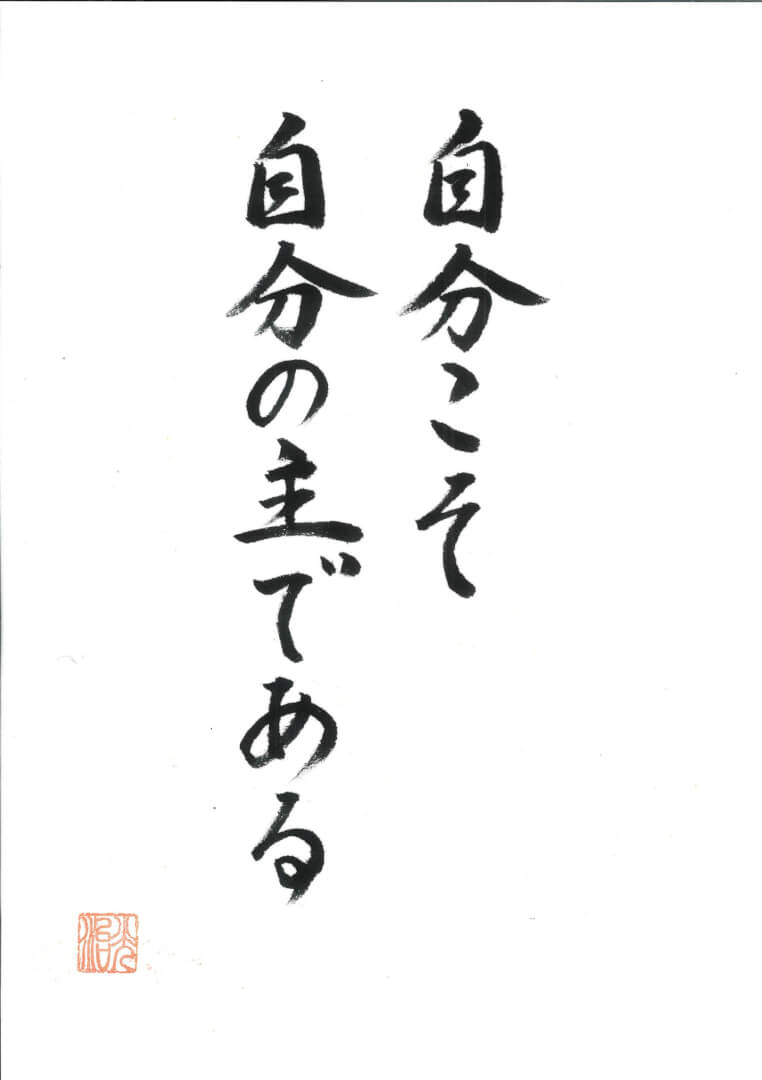 自分こそ
自分の主である